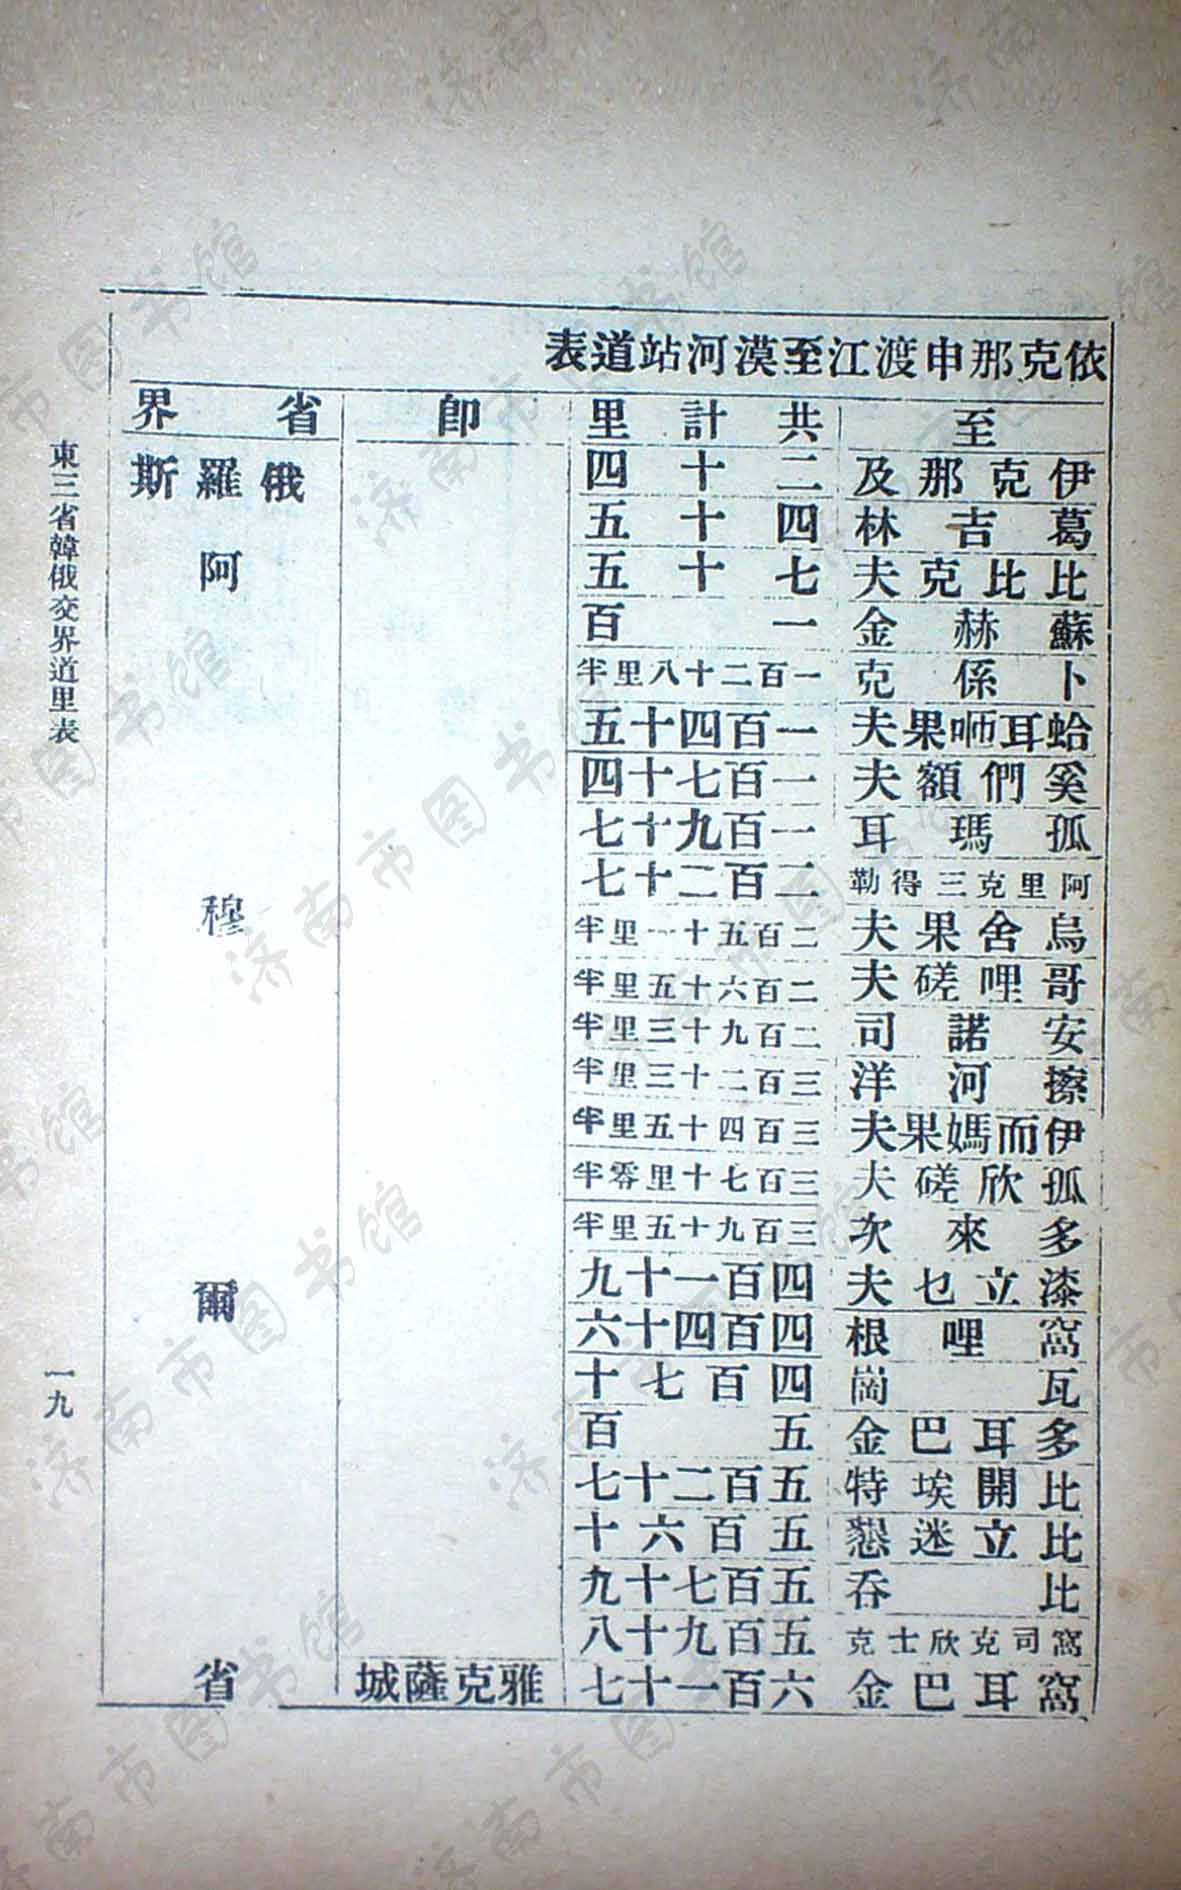 依克那申渡江至漠河站道表
至 共計里 卽 省界
伊克那及 二十四 俄羅斯
葛吉林 四十五
比比克夫 七十五 阿
蘇赫金 一百
卜係克 一百二十八里半
蛤耳咂果夫 一百四十五
奚們額夫 一百七十四
孤瑪耳 一百九十七
阿里克三得勒 二百二十七
烏舍果夫 二百五十一里半 穆
哥哩磋夫 二百六十五里半
安諾司 二百九十三里半
擦河洋 三百二十三里半
伊而媽果夫 三百四十五里半
孤欣磋夫 三百七十里零半
多來次 三百九十五里半
漆立乜夫 四百一十九 爾
窩哩根 四百四十六
瓦崗 四百七十
多耳巴金 五百
比開埃特 五百二十七
比立迷懇 五百六十
比呑 五百七十九
窩司克欣士克 五百九十八
窩耳巴金 六百一十七 雅克薩城 省
東三省韓俄交界道里表
一九
济南市图书馆